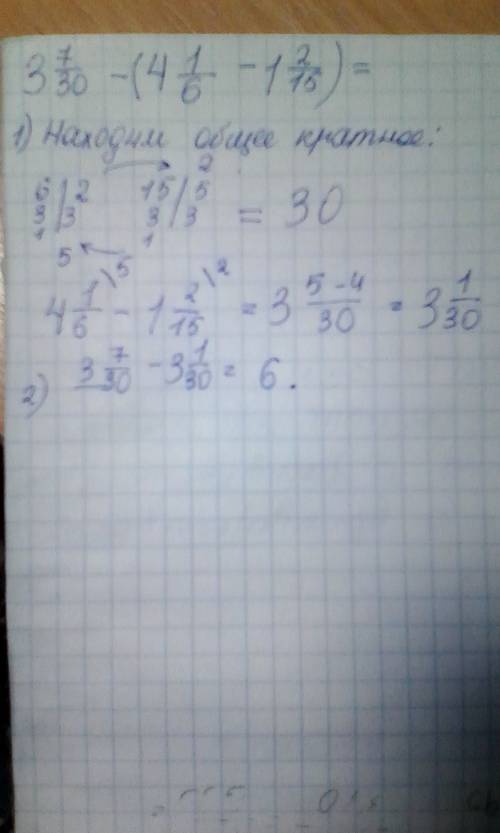 3 7/30 - (4 1/6 - 1 2/15) =
1) Находим общее кратное:
2
6 | 2 15 | 5
3 | 3 3 | 3 = 30
1 1
5 5 2
4 1/6 - 1 2/15 = 3 5-4/30 = 3 1/30
2) 3 7/30 - 3 1/30 = 6.